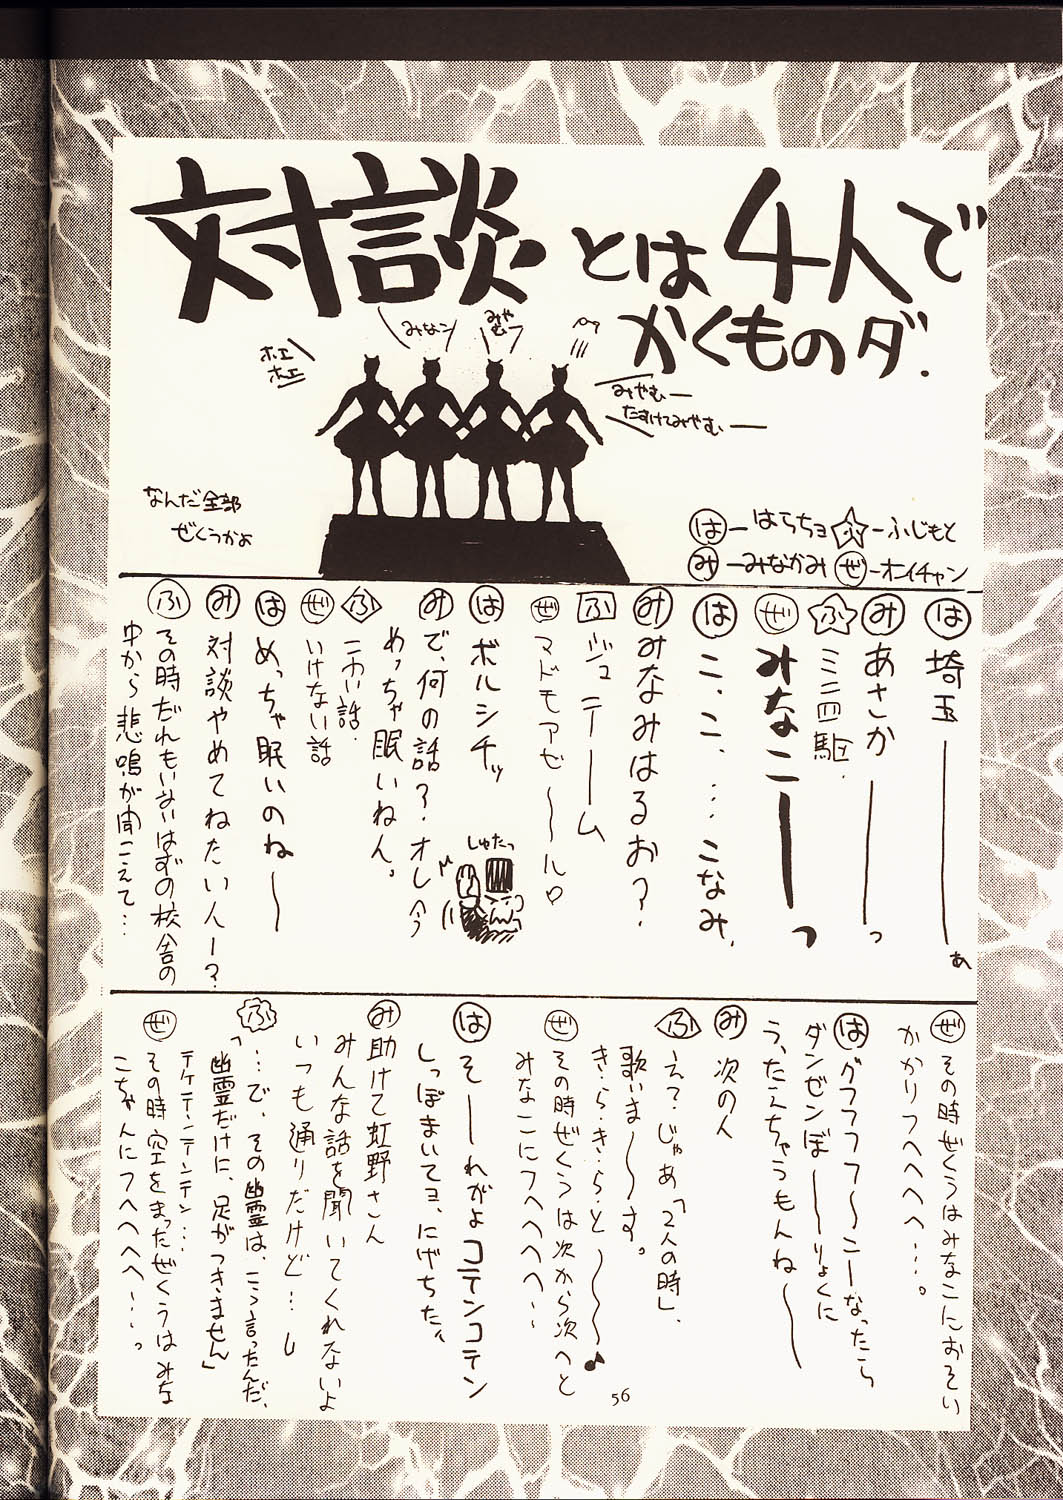 対談とは4人で
かくものダ.
ホエ
ホエ
みなコ
みや
むっ
みやむー
たすけてみやむー
なんだ全部
ぜくうかよ
は-はらちョ ふ-ふじもと
み-みなかみ ぜ-オイチャン
は 埼玉ーーーぁ
み あさかーーーっ
ふ ミニ四駆.
ぜ みなこーーっ
は こ、こ、…こなみ、
み みなみはるお?
ふ ジュニーーム
ぜ マドモアゼ〜ル♡
は ボルシチッ
しゅたっ
み で、何の話?オレ今
めっちゃ眠いねん。
ふ こわい話.
ぜ いけない話
は めっちゃ眠いのね〜
み 対談やめてねたい人ー?
ふ その時だれもいないはずの校舎の
中から悲鳴が聞こえて…
ぜ その時ぜくうはみなこにおそい
かかりフヘヘヘヘ…。
は グフフフフ〜こーなったら
ダンゼンぼ〜りょくに
うったえちゃうもんね〜
み 次の人
ふ えっ?じゃあ「2人の時」、
歌いま〜す。
き・ら・き・ら・と〜♪
ぜ その時ぜくうは次から次へと
みなこにフヘヘヘヘ…
は そーーれがよコテンコテン
しっぽまいてョ、にげちた。
み 助けて虹野さん
みんな話を聞いてくれないよ
いつも通りだけど…し
ふ 「…で、その幽霊は、こう言ったんだ、
幽霊だけに、足がつきません」
テケテンテンテンテン…
ぜ その時空をまったぜくうはみな
こちゃんにフヘヘヘヘ…っ
56